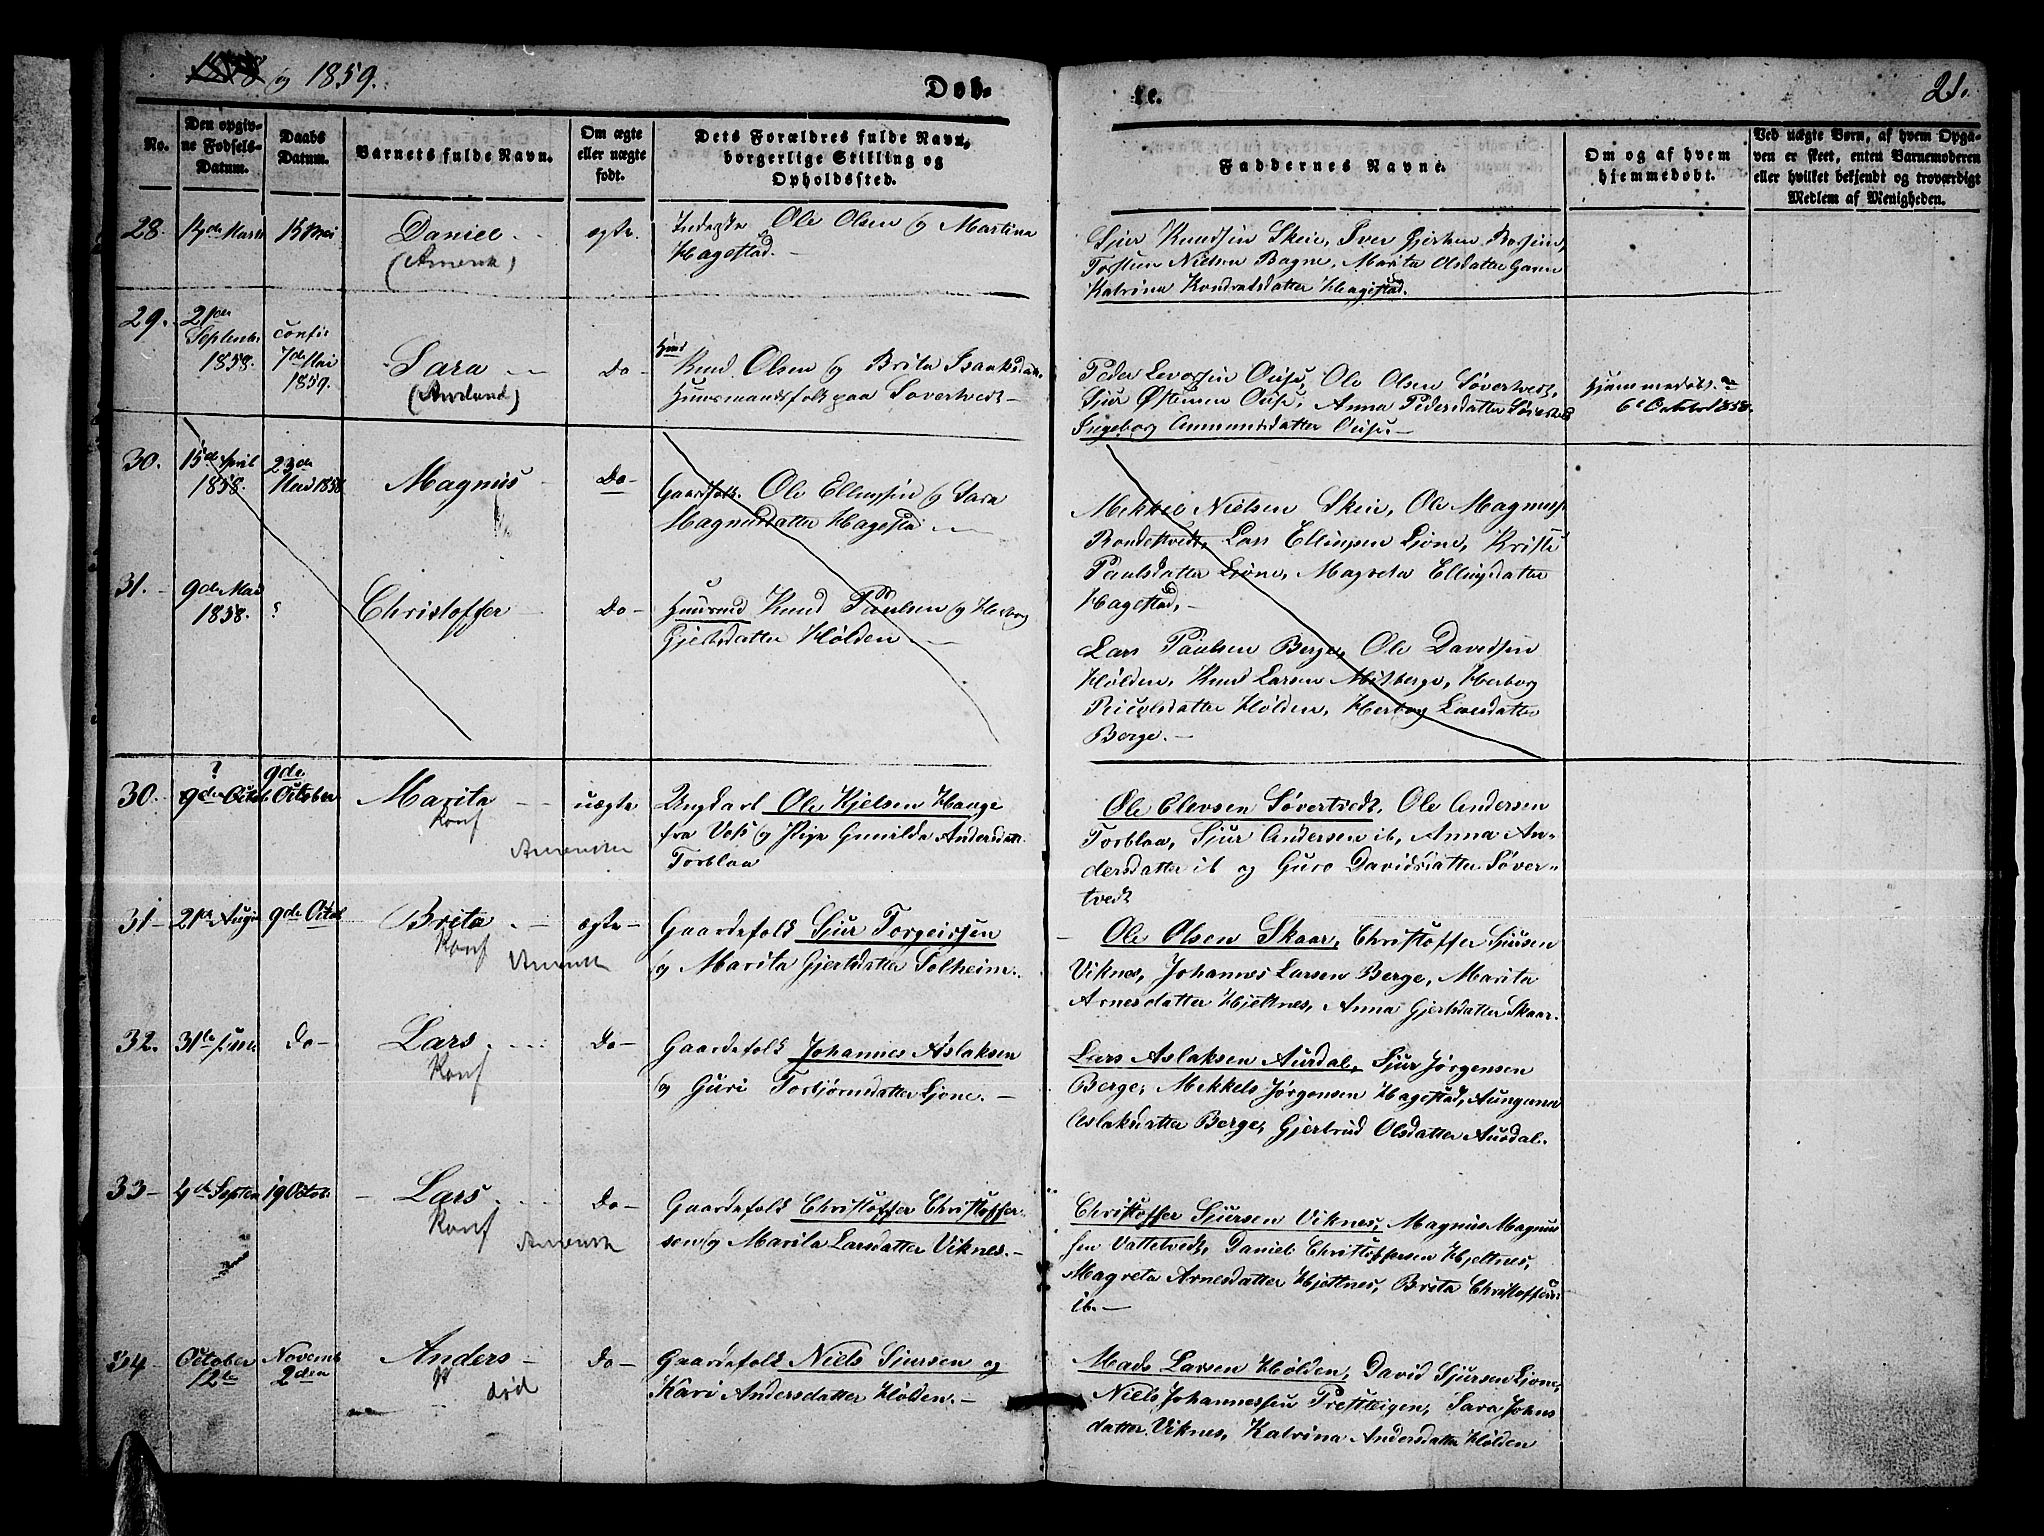 1858 og 1859.
Døb-
te.
21.
No.
Den opgiv-
ne Fødsels-
Datum.
Daabs
Datum.
Barnets fulde Navn.
Om ægte
eller uægte
født.
Dets Forældres fulde Navn,
borgerlige Stilling og
Opholdssted.
Faddernes Navne.
Om og af hvem
hjemmedøbt.
Ved uægte Børn, af hvem Opga-
ven er skeet, enten Barnemoderen
eller hvilket bekjendt og troværdigt
Medlem af Menigheden.
28
15 Mai
Daniel
ægte
Ole Olsen og Martina
Hagestad.
Sjur Knudsen Skeie, Iver
Torsten Nielsen Bagne, Marita Olsdatter
Katrina Kondratsdatter Hagestad.
29.
21de
September
1858.
confir
7de Mai
1859.
Sara
Do
Knud Olsen og Brita Isaaksdatt.
Huusmandsfolk paa Søvertvedt
Peder Ouse, Ole Olsen Søvertvedt,
Sjur Østensen Ouse, Anna Pedersdatter
Ingeborg Amundsdatter Ouse.
Hjemmedøbt
6te October 1858.
30.
15de April
1858.
23de
Mai 1858
Magnus
Do
Gaardfolk. Ole Ellingsen og Sara
Magnusdatter Hagestad
Mekkel Nielsen Skeie, Ole Magnuss.
Rondestvedt, Lars Ellingsen Ljone, Kristi
Paulsdatter Ljone, Magreta Ellingsdatter
Hagestad,
31.
9de Mai
1858.
Christoffer
Do
Huusmd Knud Paulsen og Herborg
Gjertsdatter Hølden.
Lars Paulsen Berge, Ole Davidsen
Hølden, Knud Larsen Midberge, Herborg
Hølden, Herborg Larsdatter
Berge.
30.
?
9de Octob.
9de
October
Marita
Konf
uægte
Ungkarl Ole Kjelsen Hauge
fra Voss og Pige Gunilda Andersdatt.
Torblaa
Ole Elevsen Søvertvedt, Ole Andersen
Torblaa, Sjur Andersen ib, Anna An-
dersdatter ib og Guro Davidsdatter Søver-
tvedt
31
21de August
9de Octob
Brita
Konf
ægte
Gaardefolk Sjur Torgeirsen
og Marita Gjertsdatter Solheim.
Ole Olsen Skaar, Christoffer Sjursen
Viknes, Johannes Larsen Berge, Marita
Arnesdatter Hjeltnes, Anna Gjertsdatter Skaar.
32.
Do
Lars
Konf
Do
Gaardefolk Johannes Aslaksen
og Guri Torbjørnsdatter Ljone.
Lars Aslaksen Aurdal, Sjur Jørgensen
Berge, Mekkels Jørgensen Hagestad,
Aslaksdatter Berge, Gjertrud Olsdatter Aurdal.
33
4de Septem
19 Octob.
Lars
Konf
Do
Gaardefolk Christoffer Christoffer-
sen og Marita Larsdatter Viknes.
Christoffer Sjursen Viknes, Magnus Magnus
sen Vattetvedt, Daniel Christoffersen Hjeltnes,
Magreta Arnesdatter Hjeltnes, Brita Christoffers
ib.
34
October
12te
Novemb
2den
Anders
død
Do
Gaardefolk Niels Sjursen og
Kari Andersdatter Hølden.
Mads Larsen Hølden, David Sjursen Ljone,
Niels Johannessen Prestteigen, Sara Johns
datter Viknes, Katrina Andersdatter Hølden